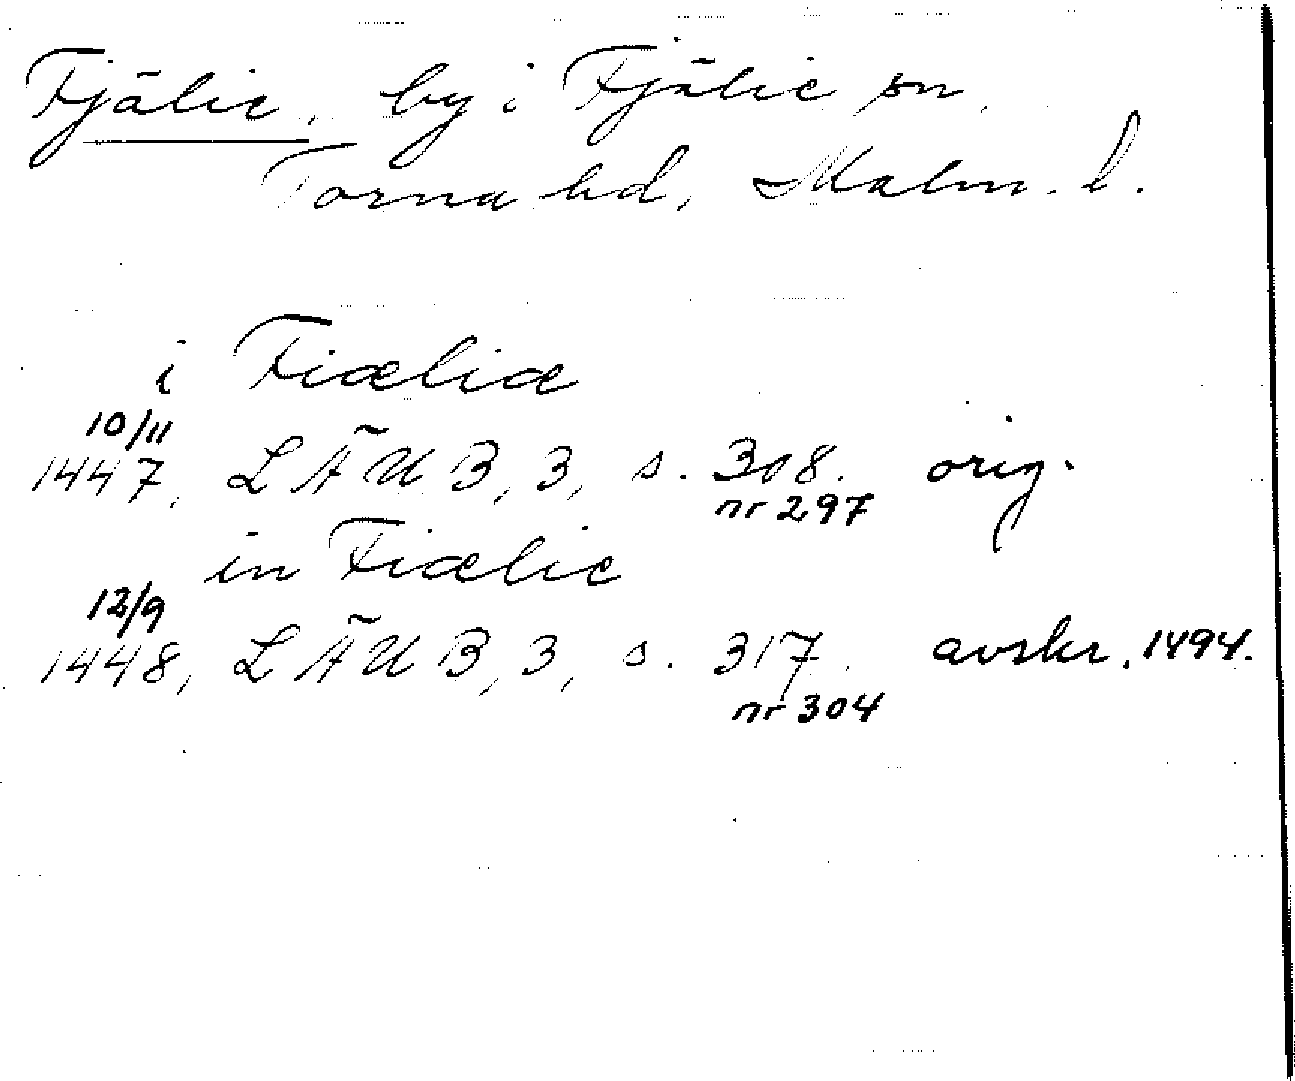 Fjälie, by i Fjälie sn,
Torna hd, Malm. l.
i Fiæliæ
10/11
1447, LÄUB, 3, s. 308. orig.
nr 297
in Fiælie
12/9
1448, LÄUB, 3, s. 317. avskr. 1494.
nr 304